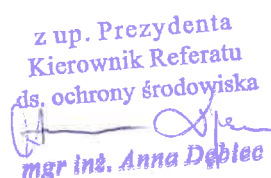 z up. Prezydenta
Kierownik Referatu
ds. ochrony środowiska
mgr inż. Anna Dębiec